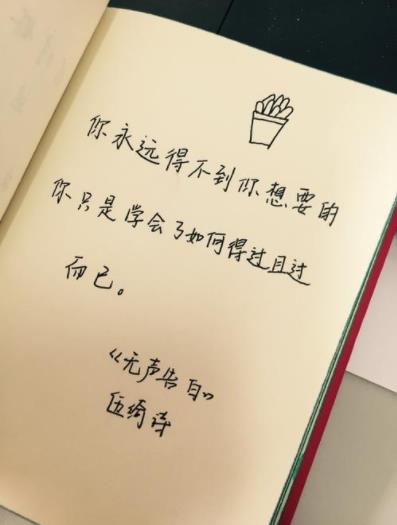 你永远得不到你想要的
你只是学会了如何得过且过
而已。
《无声告白》
伍绮诗